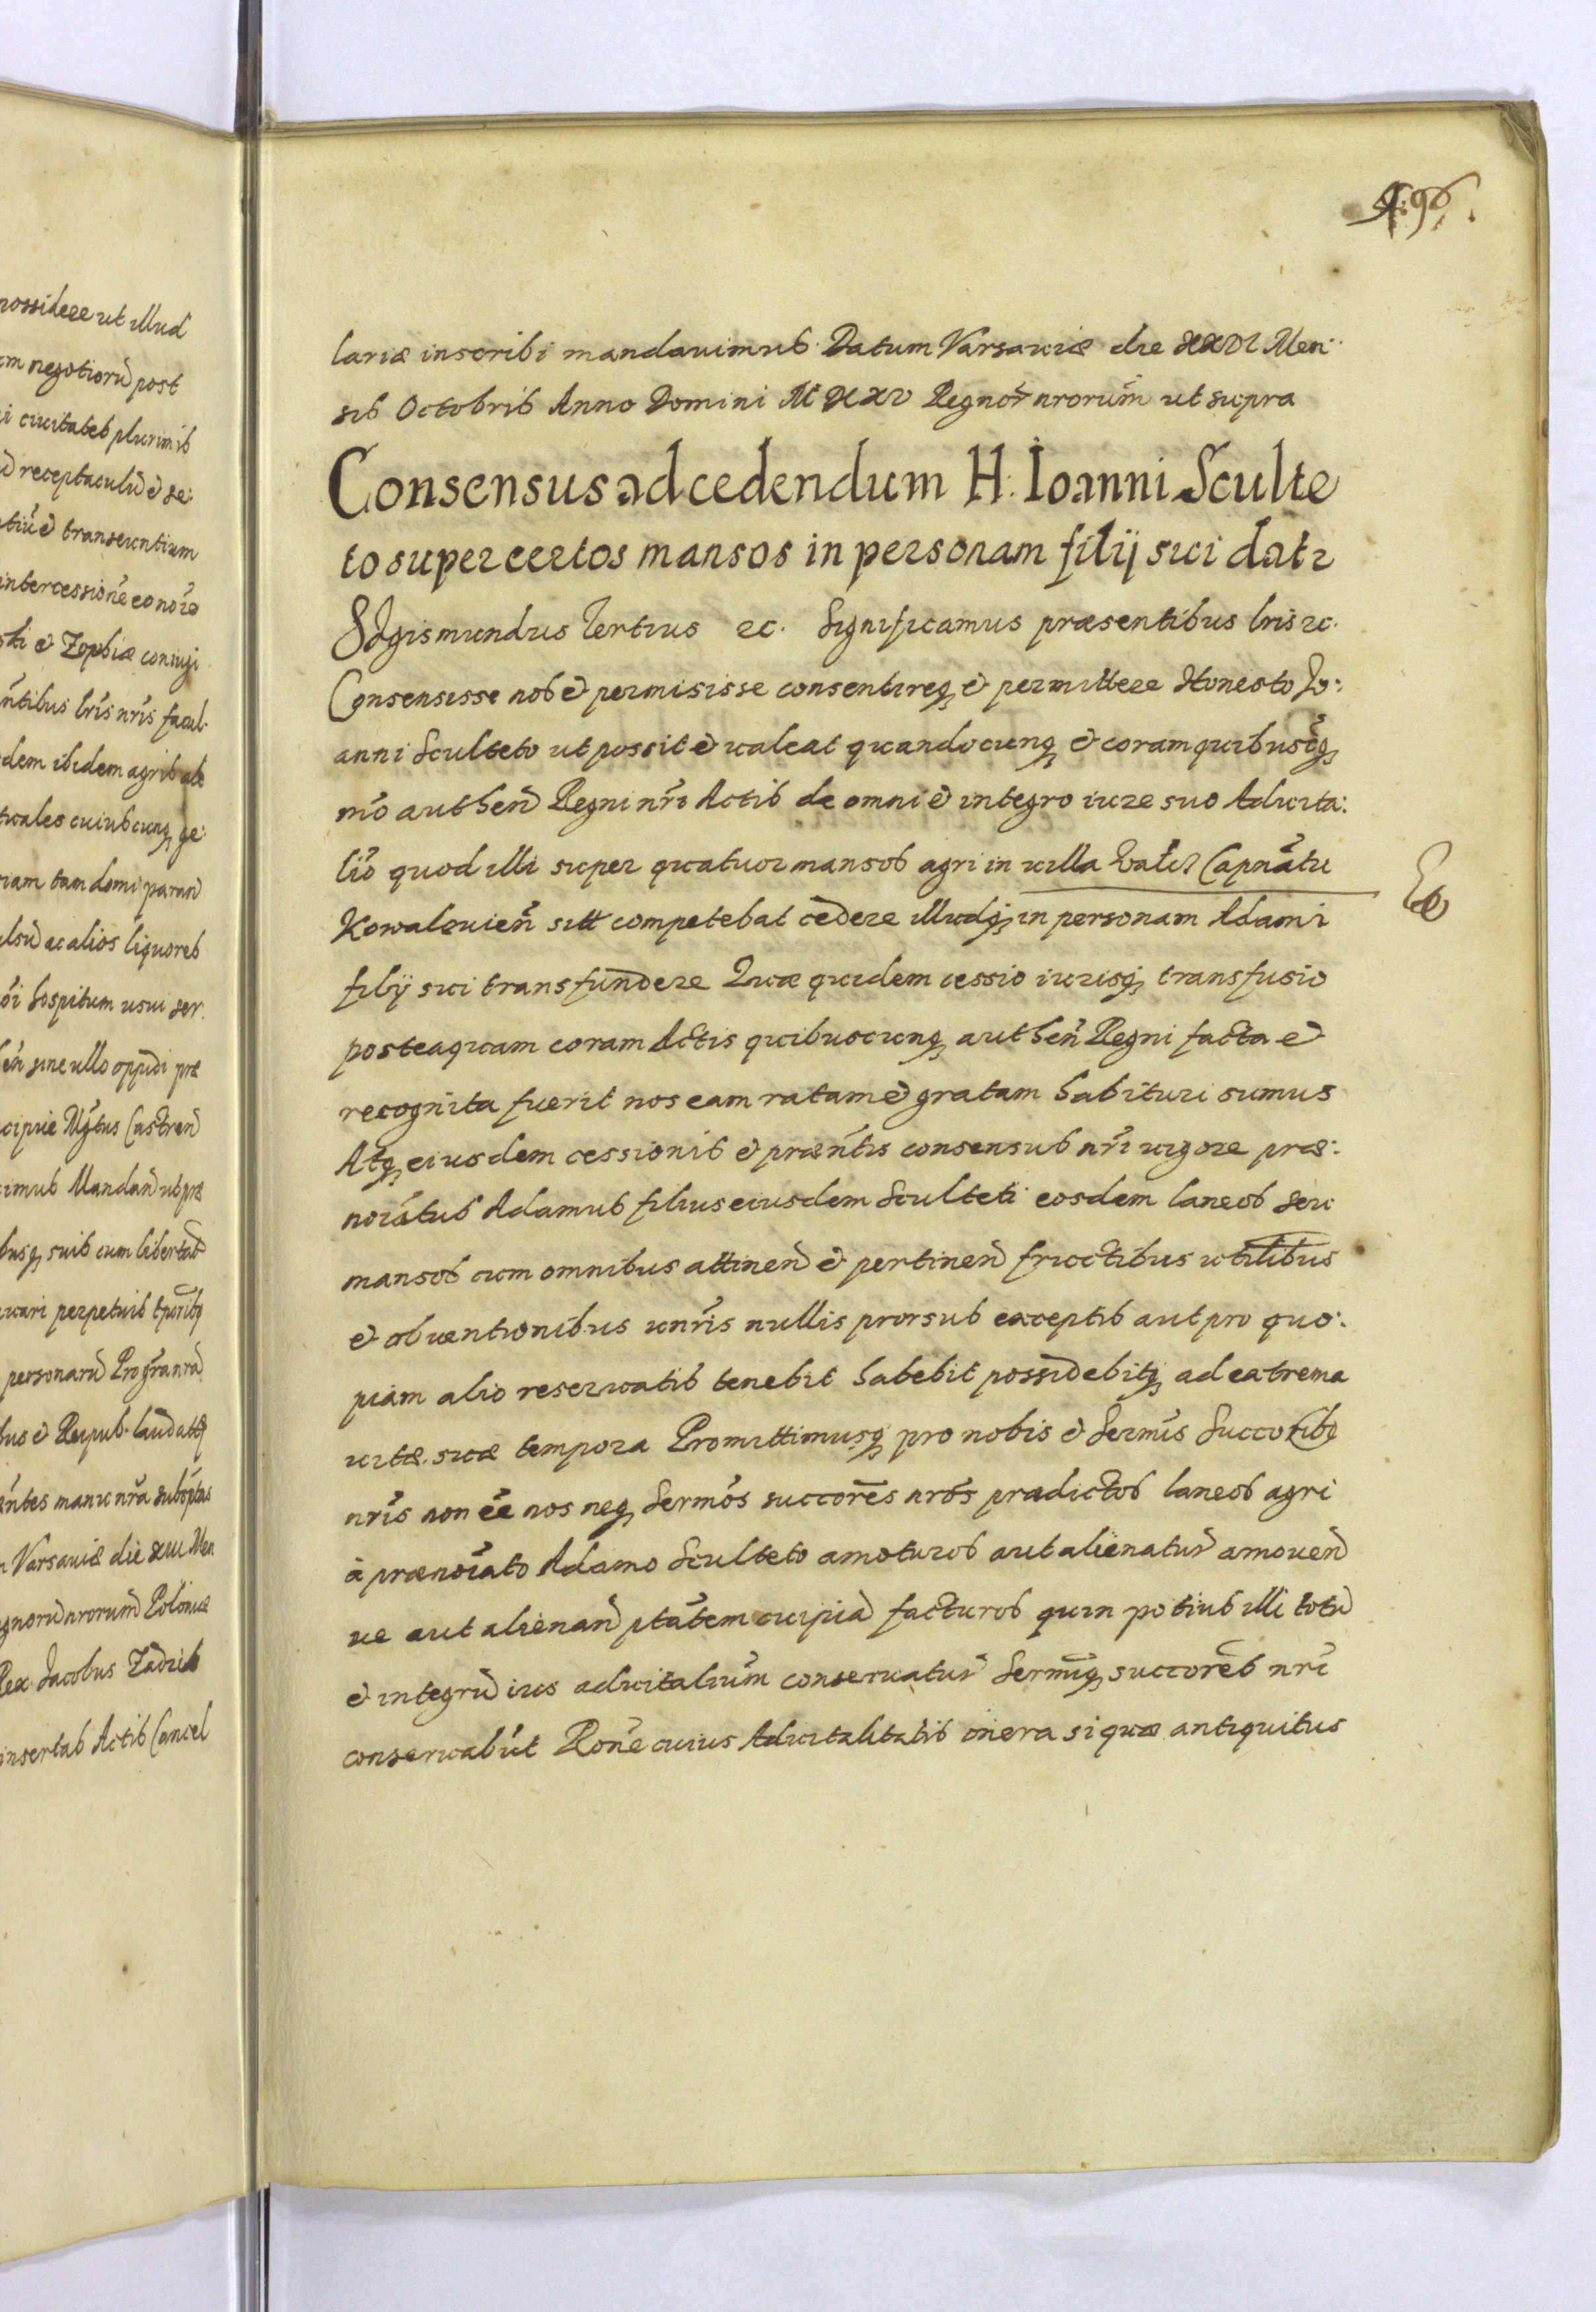 possidere ut illud
negotiorũ post
civitates plurimis
receptaculũ et se:
transeuntium
intercessione
et Zophiæ coniugi
ntibus lris nris facul
dem ibidem agris
cuiuscunq ge:
tam domi parand
ac alios liquores
hospitum usui ser.
sine ullo oppidi præ
Castren
imus Mandan ut præ
busq suis cum libertat
perpetuis
personarũ
et Reipub.
ntes manu nra
Varsaviæ die XIII Men
nrorum Poloniæ
Rex Jacobus Zadzik
insertas Actis Cancel
496.
lariæ inscribi mandavimus. Datum Varsaviæ die XXVI Men:
sis Octobris Anno Domini MDCXV Regnor nrorum ut supra
Consensus ad cedendum H. Ioanni Sculte
to super certos mansos in personam filij sui datr
Sigismundus Tertius &c. Significamus præsentibus lris &c.
Consensisse nos et permisisse consentireq et permittere Honesto Jo:
anni Sculteto ut possit et valeat quandocunq et coram quibuscq
mo authen Regni nri Actis de omni et integro iure suo Advita:
lio quod illi super quatuor mansos agri in villa Capnatu
Kowalevien sitt competebat cedere illudq in personam Adami
filij sui transfundere Quæ quidem cessio iurisq transfusio
posteaquam coram Actis quibuscunq authen Regni facta et
recognita fuerit nos eam ratam et gratam habituri sumus
Atq eiusdem cessionis et præntis consensus nri vigore præ:
noiatus Adamus filius eiusdem Sculteti eosdem laneos seu
mansos cum omnibus attinen et pertinen fructibus utilibus
et obventionibus unris nullis prorsus exceptis aut pro quo:
piam alio reservatis tenebit habebit possidebitq ad extrema
vitæ suæ tempora Promittimusq pro nobis et Sermis Succoribq
nris non ee nos neq Sermos succores nros prædictos laneos agri
à prænoiato Adamo Sculteto amoturos aut alienatur amoven
ve aut alienan ptatem cuipia facturos quin potius illi totũ
et integrũ ius advitalium conservatur Sermiq succores nri
conservabut Rone cuius Advitalitatis onera si quæ antiquitus